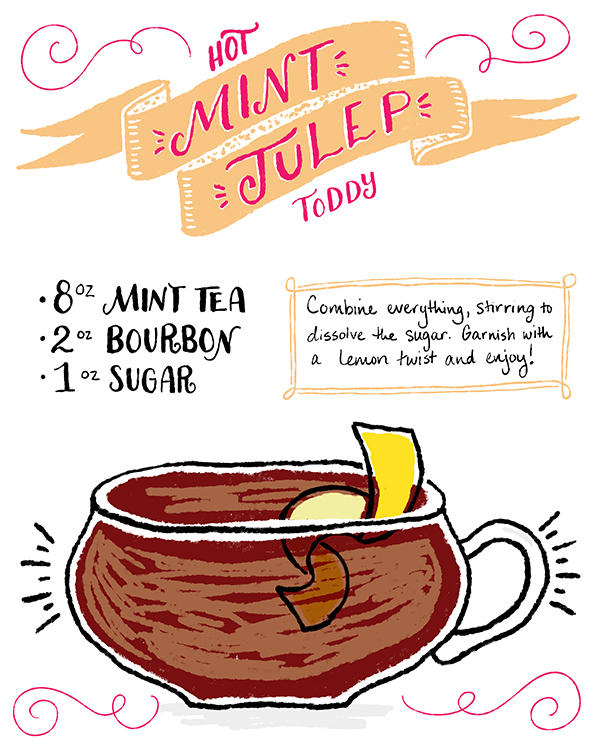 HOT
MINT
JULEP
TODDY
· 8 oz MINT TEA
· 2 oz BOURBON
· 1 oz SUGAR
Combine everything, stirring to
dissolve the sugar. Garnish with
a lemon twist and enjoy!